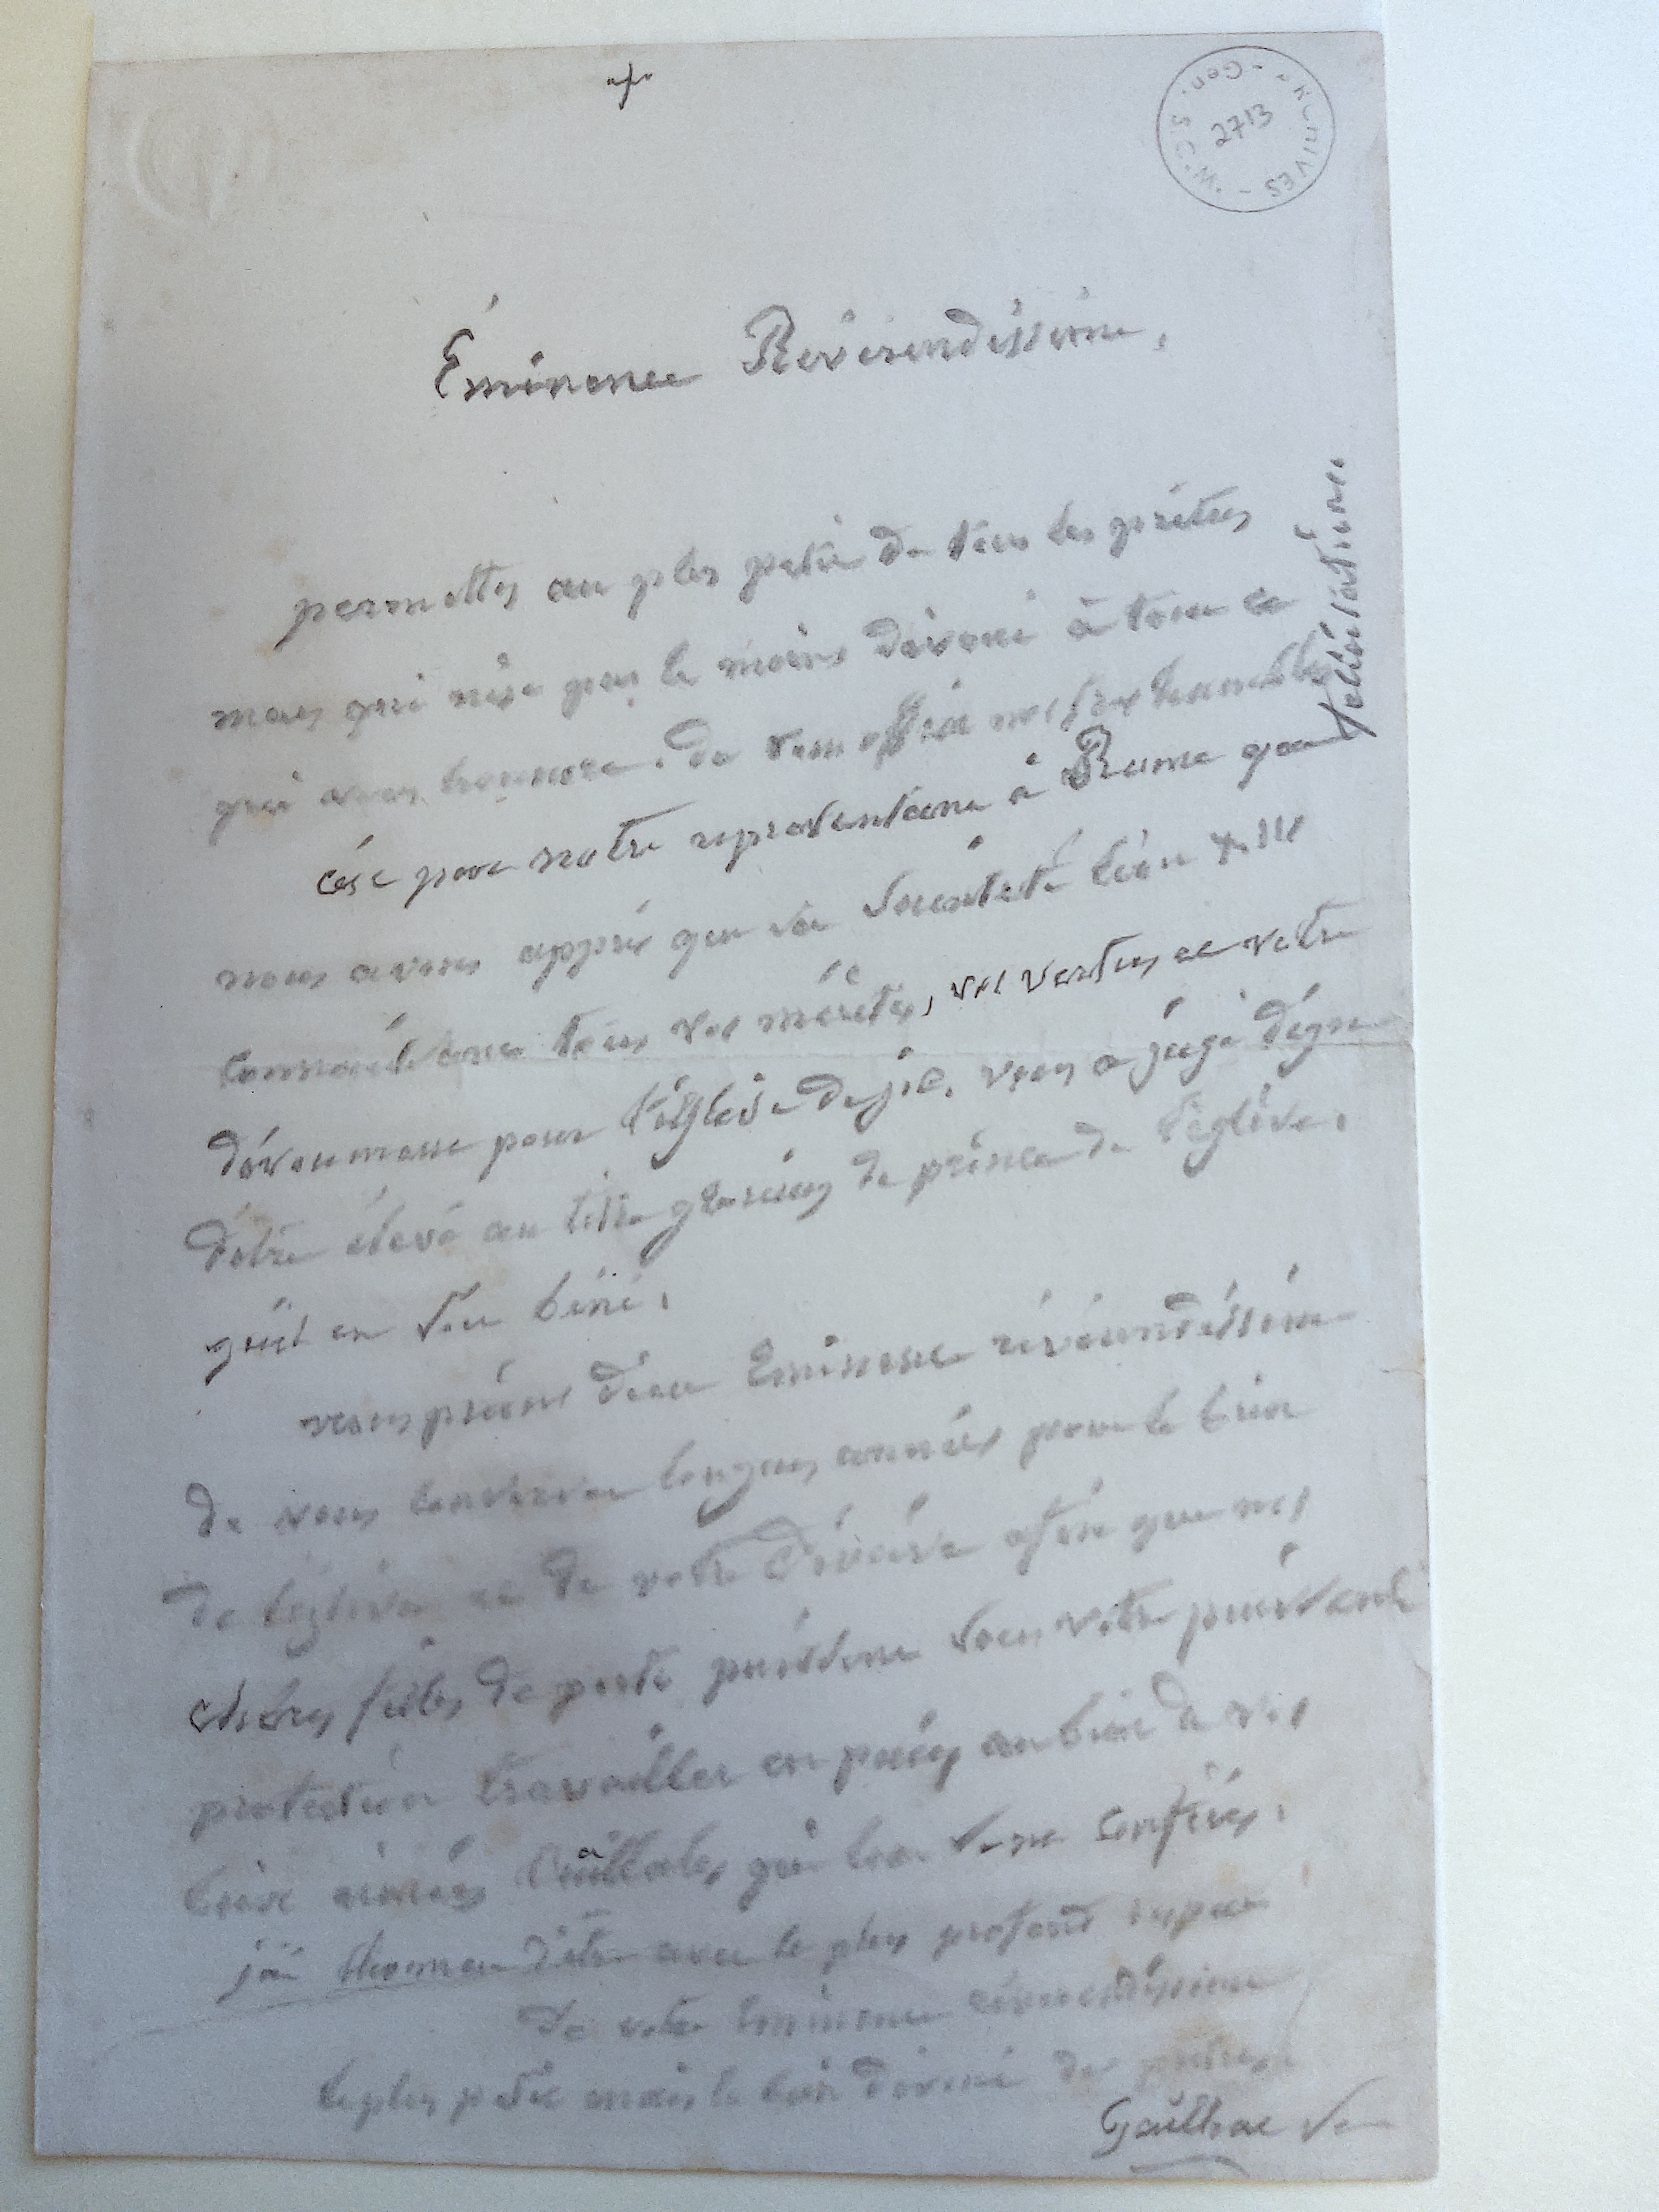 ARCHIVES - Gen. S.C.M.
2713
Éminence Révérendissime,
permettes au plus petit de tous les prêtres
mais qui n'est pas le moins dévoué à tous ce
qui vous honnore. de vous offrir nos très humbles
félicitations
c'est par notre représentant à Rome que
nous avons appris que Sa Sainteté Léon XIII
connaissant tous vos mérites, vos vertus et votre
dévoument pour l'église de j.c. vous a jugé digne
d'être élevé au titre glorieux de prince de l'église.
qu'il en soit béni.
nous prions dieu Eminence révérendissime
de vous conserver longues années pour le bien
de l'église et de votre diocèse afin que nos
chères filles de porto puissent sous votre puissante
protection travailler en paix au bien de vos
bien aimés ouailles qui leur sont confiées.
j'ai l'honneur d'être avec le plus profond respect
de votre Eminence révérendissime
le plus petit mais le bien dévoué des prêtres
Gailhac Sr